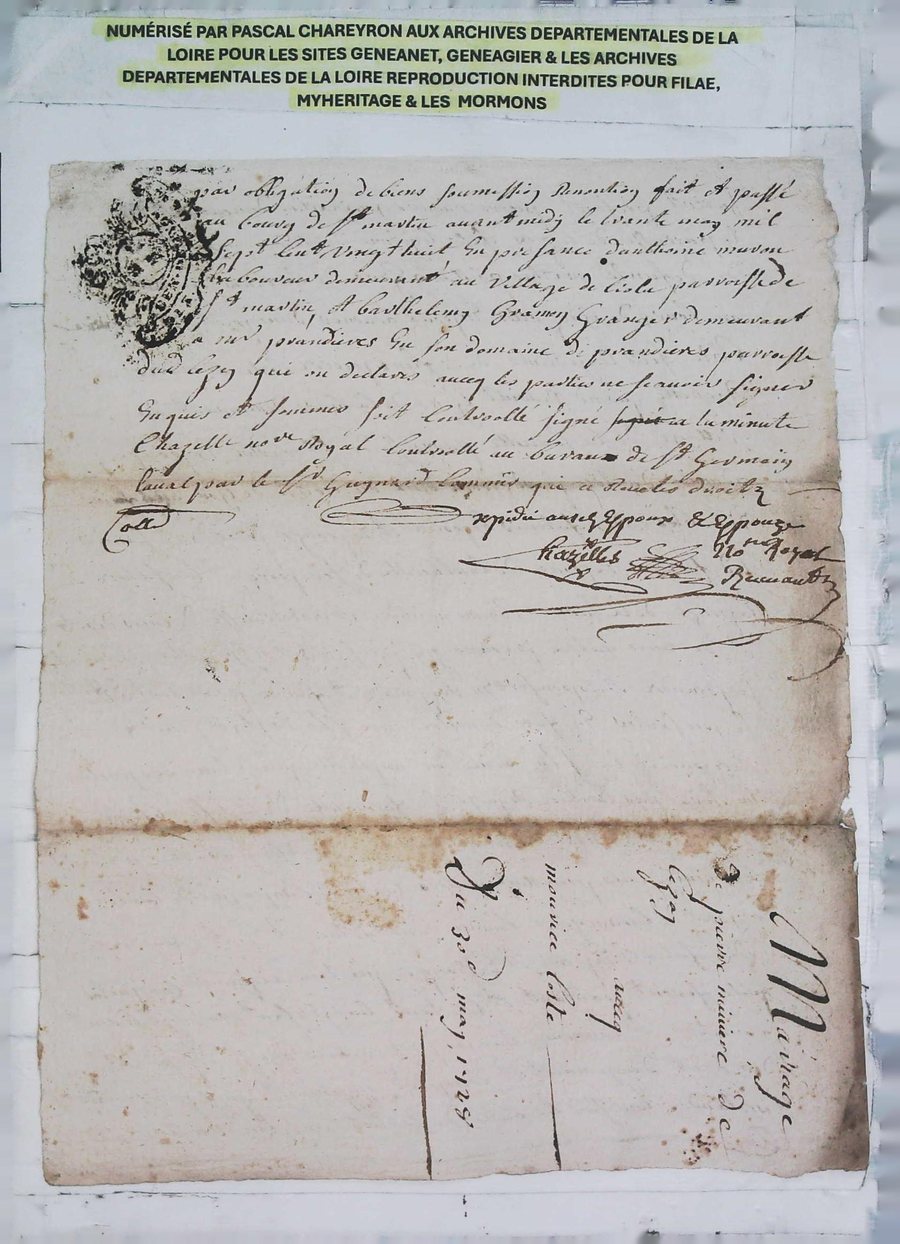 NUMÉRISÉ PAR PASCAL CHAREYRON AUX ARCHIVES DEPARTEMENTALES DE LA
LOIRE POUR LES SITES GENEANET, GENEAGIER & LES ARCHIVES
DEPARTEMENTALES DE LA LOIRE REPRODUCTION INTERDITES POUR FILAE,
MYHERITAGE & LES MORMONS
par obligation de biens soumession Renontion fait et passé
au bourg de St martin avant midy le trante may mil
Sept Cent vingt huit En presance danthoine
laboureur demeurant au village de parroisse de
St martin et barthelemy Granger demeurant
a prandieres En son domaine de prandieres parroisse
dud qui on declares avecq les parties ne scavoir signer
Enquis et sommes soit Controllé signé a la minute
Chazelle nore Royal Controllé au bureau de St Germain
laval par le Sr Commis qui a droits
Coll expedie ausd Eppoux & Eppouze
Chazelles No re Royal
Recevant
Mairage
De pierre miniere de
lezey
avecq
mourice Coste
Du 30e may 1728